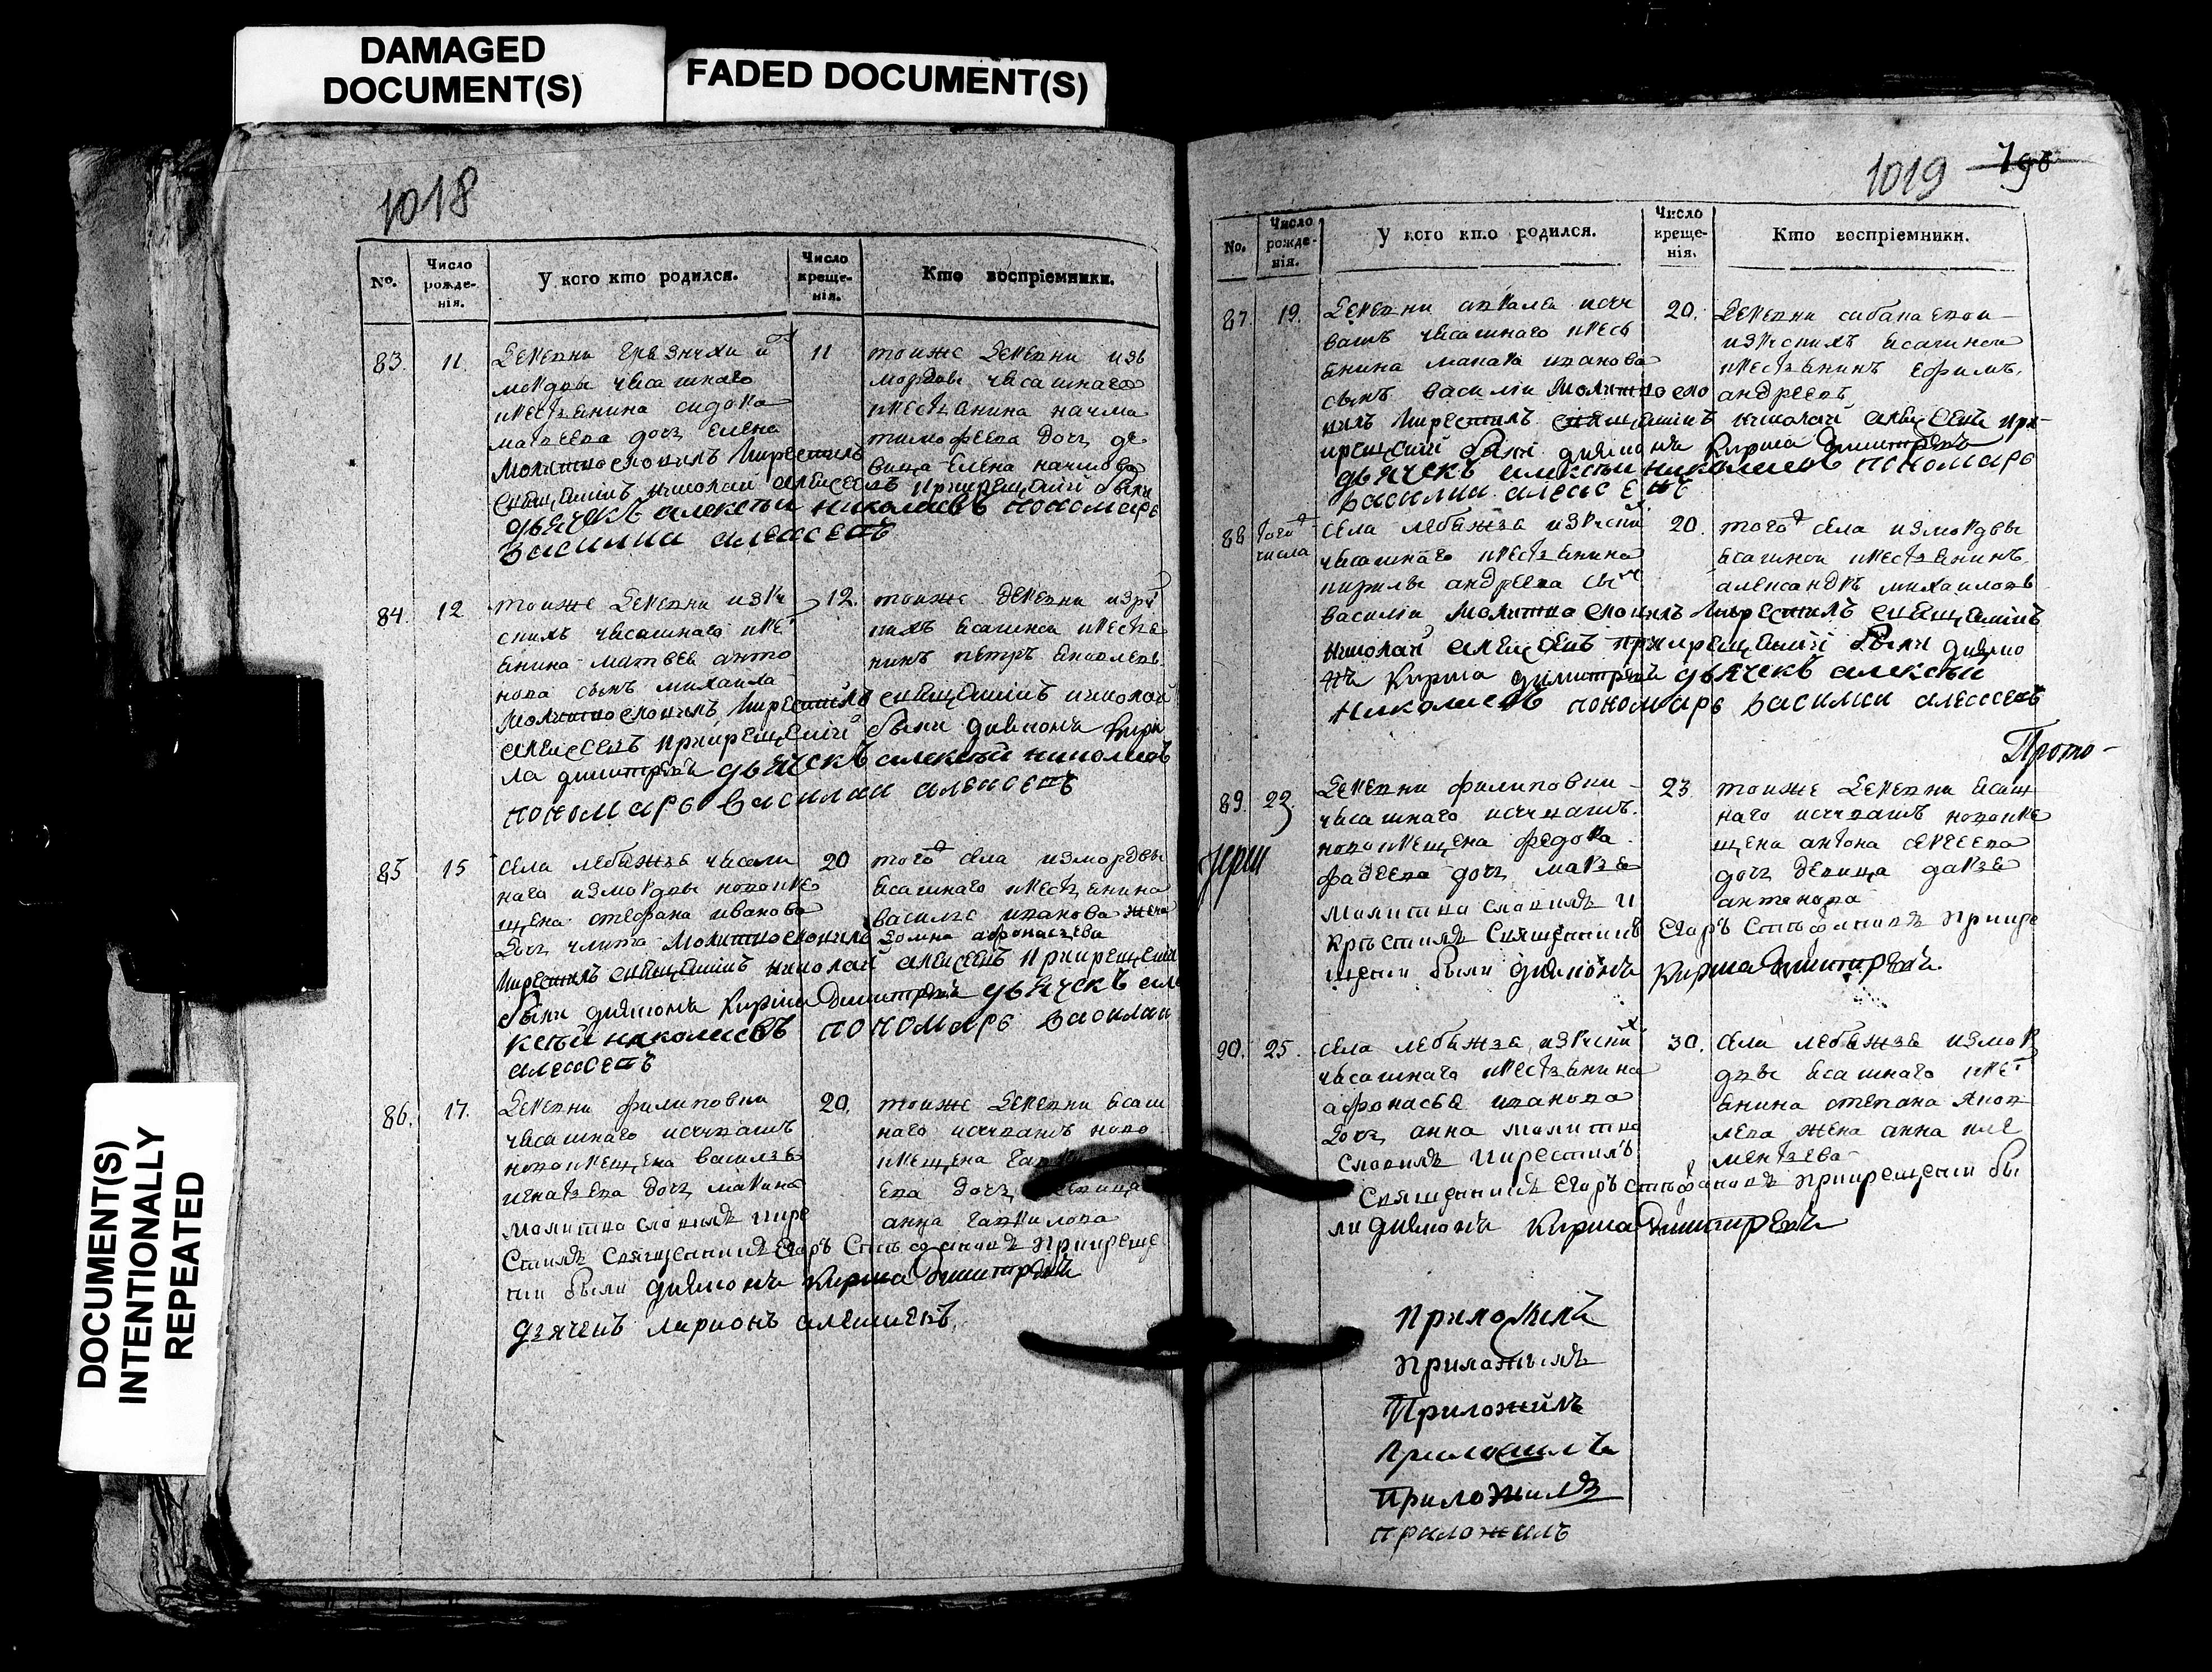 DAMAGED
DOCUMENT(S)
FADED DOCUMENT(S)
DOCUMENT(S)
INTENTIONALLY
REPEATED
1018
No.
Число рожде-нія.
У кого кто родился.
Число креще-нія.
Кто воспріемники.
83.
11.
деревни
ясашнаго
крестьянина сидора
дочь елена
молитвословилъ икрестилъ
священникъ николай алексеевъ прикрещении были
дьячекъ алексѣй николаевъ пономарь
василии алексеевъ
11
тоиже деревни изъ
мордвы ясашнаго
крестьянина наума
тимофеева дочь де
вица елена наумова
84.
12
тоиже деревни изру
скихъ ясашнаго кре
янина матвея анто
нова сынъ михаила
молитвословилъ икрестилъ священникъ николай
алексеевъ прикрещении были диаконъ кири
ла димитревъ дьячекъ алексѣй николаевъ
пономарь василии алексеевъ
12.
тоиже деревни изру
ясашнои крестья
нинъ петръ яковлевъ
85
15
села лебяжья ясаш
наго измордвы новокре
щена стефана иванова
дочь молитвословилъ
икрестилъ священникъ николай алексеевъ прикрещении
были диаконъ кирила димитревъ дьячекъ але
ксѣй николаевъ пономарь василии
алексеевъ
20
того села измордвы
ясашнаго крестьянина
василья иванова жена
домна афонасьева
86.
17.
деревни филиповки
ясашнаго исчувашъ
новокрещена василья
игнатьева дочь марина
молитва словилъ икре
стилъ священникъ егоръ стефановъ прикреще
нии были диаконъ кирила димитревъ
дьячекъ ларионъ алексиевъ
20.
тоиже деревни ясаш
наго исчувашъ ново
крещена
ева дочь девица
анна гаврилова
1019
No.
Число рожде-нія.
У кого кто родился.
Число креще-нія.
Кто воспріемники.
87.
19.
деревни исчу
вашъ ясашнаго кресь
янина макара иванова
сынъ василіи молитвосло
вилъ икрестилъ священникъ николай алексеевъ при
крещении были диаконъ кирила димитревъ
дьячекъ алексѣи николаевъ пономарь
василии алексеевъ
20.
деревни
изрускихъ ясашнои
крестьянинъ ефимъ
андреевъ
88
того числа
села лебяжья изруских
ясашнаго крестьянина
кирилы андреева сынъ
василіи молитва словилъ икрестилъ священникъ
николай алексеевъ прикрещении были диако
нъ кирила димитревъ дьячекъ алексѣи
николаевъ пономарь василии алексеевъ
20.
того села измордвы
ясашнои крестьянинъ
александръ михаиловъ
Прото-
іереи
89.
23.
деревни филиповки
ясашнаго исчувашъ
новокрещена федора
фадеева дочь марья
молитва словилъ и
крѣстилъ священникъ егоръ стефановъ прикре
щении были диаконъ кирила димитревъ.
23.
тоиже деревни ясаш
наго исчувашъ новокре
щена антона
дочь девица дарья
антонова
90.
25.
села лебяжья изруских
ясашнаго крестьянина
афонасья иванова
дочь анна молитва
словилъ икрестилъ
священникъ егоръ стефановъ прикрещении бы
ли диаконъ кирила димитревъ
30.
села лебяжья измор
двы ясашнаго кре
янина степана яков
лева жена анна кле
ментьева
Приложилъ
приложилъ
Приложилъ
приложилъ
приложилъ
приложилъ